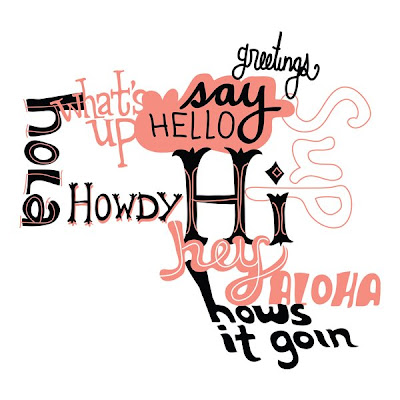 greetings
hola
what's
up
say
HELLO
Sup
HOWDY
Hi
hey
ALOHA
hows
it goin